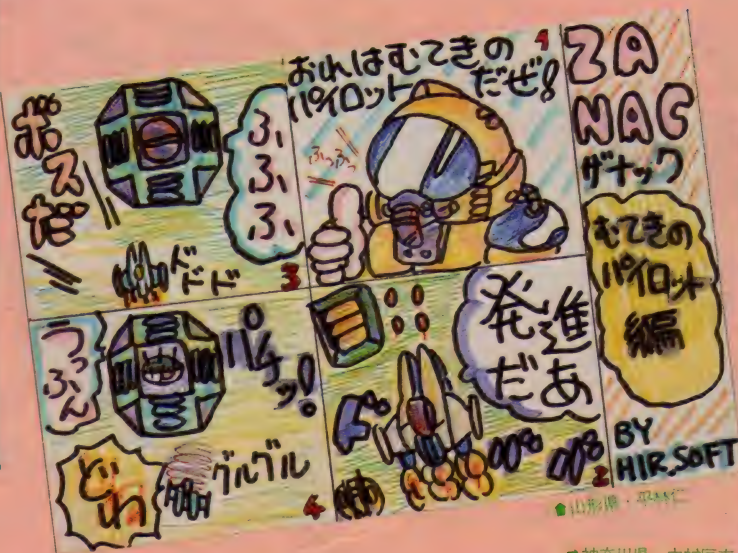 ZA
NAC
ザナック
むてきの
パイロット
編
BY
HIR.SOFT
おれはむてきの
パイロットだぜ!
ふっふっ
1
発進
だあ
ド
2
ボスだ
ふふふ、
ドドド
3
うっふん
パチッ!
どわ
グルグル
4
山形県・平
神奈川県・